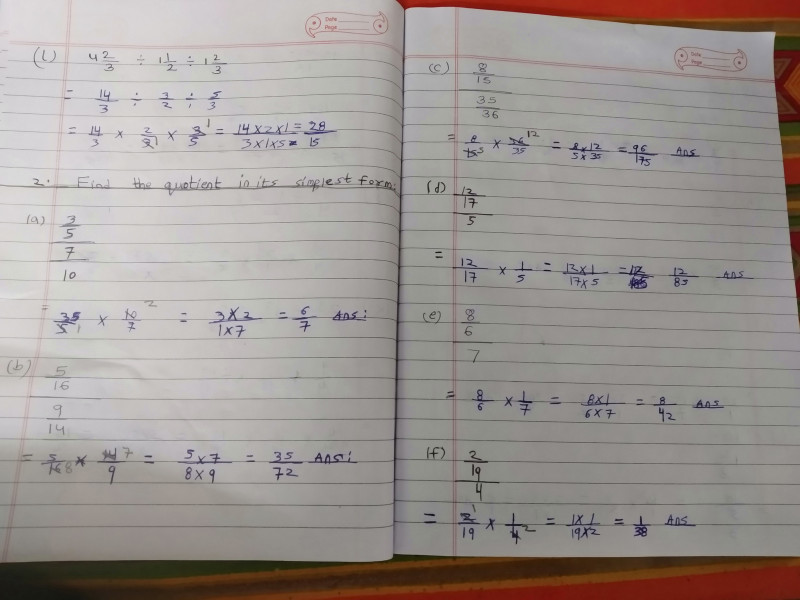 Date
Page
(L) 4 2/3 ÷ 1 1/2 ÷ 1 2/3
= 14/3 ÷ 3/2 ÷ 5/3
= 14/3 × 2/3 1 × 3/5 1 = 14×2×1/3×1×5 = 28/15
2. Find the quotient in its simplest form:
(a) 3/5 / 7/10
= 3/5 1 × 10/7 2 = 3×2/1×7 = 6/7 Ans:
(b) 5/16 / 9/14
= 5/16 8 × 14/9 7 = 5×7/8×9 = 35/72 Ans:
Date
Page
(c) 8/15 / 35/36
= 8/15 5 × 36/35 12 = 8×12/5×35 = 96/175 Ans
(d) 12/17 / 5
= 12/17 × 1/5 = 12×1/17×5 = 12/85 Ans
(e) 8/6 / 7
= 8/6 × 1/7 = 8×1/6×7 = 8/42 Ans
(f) 2/19 / 4
= 2/19 1 × 1/4 2 = 1×1/19×2 = 1/38 Ans